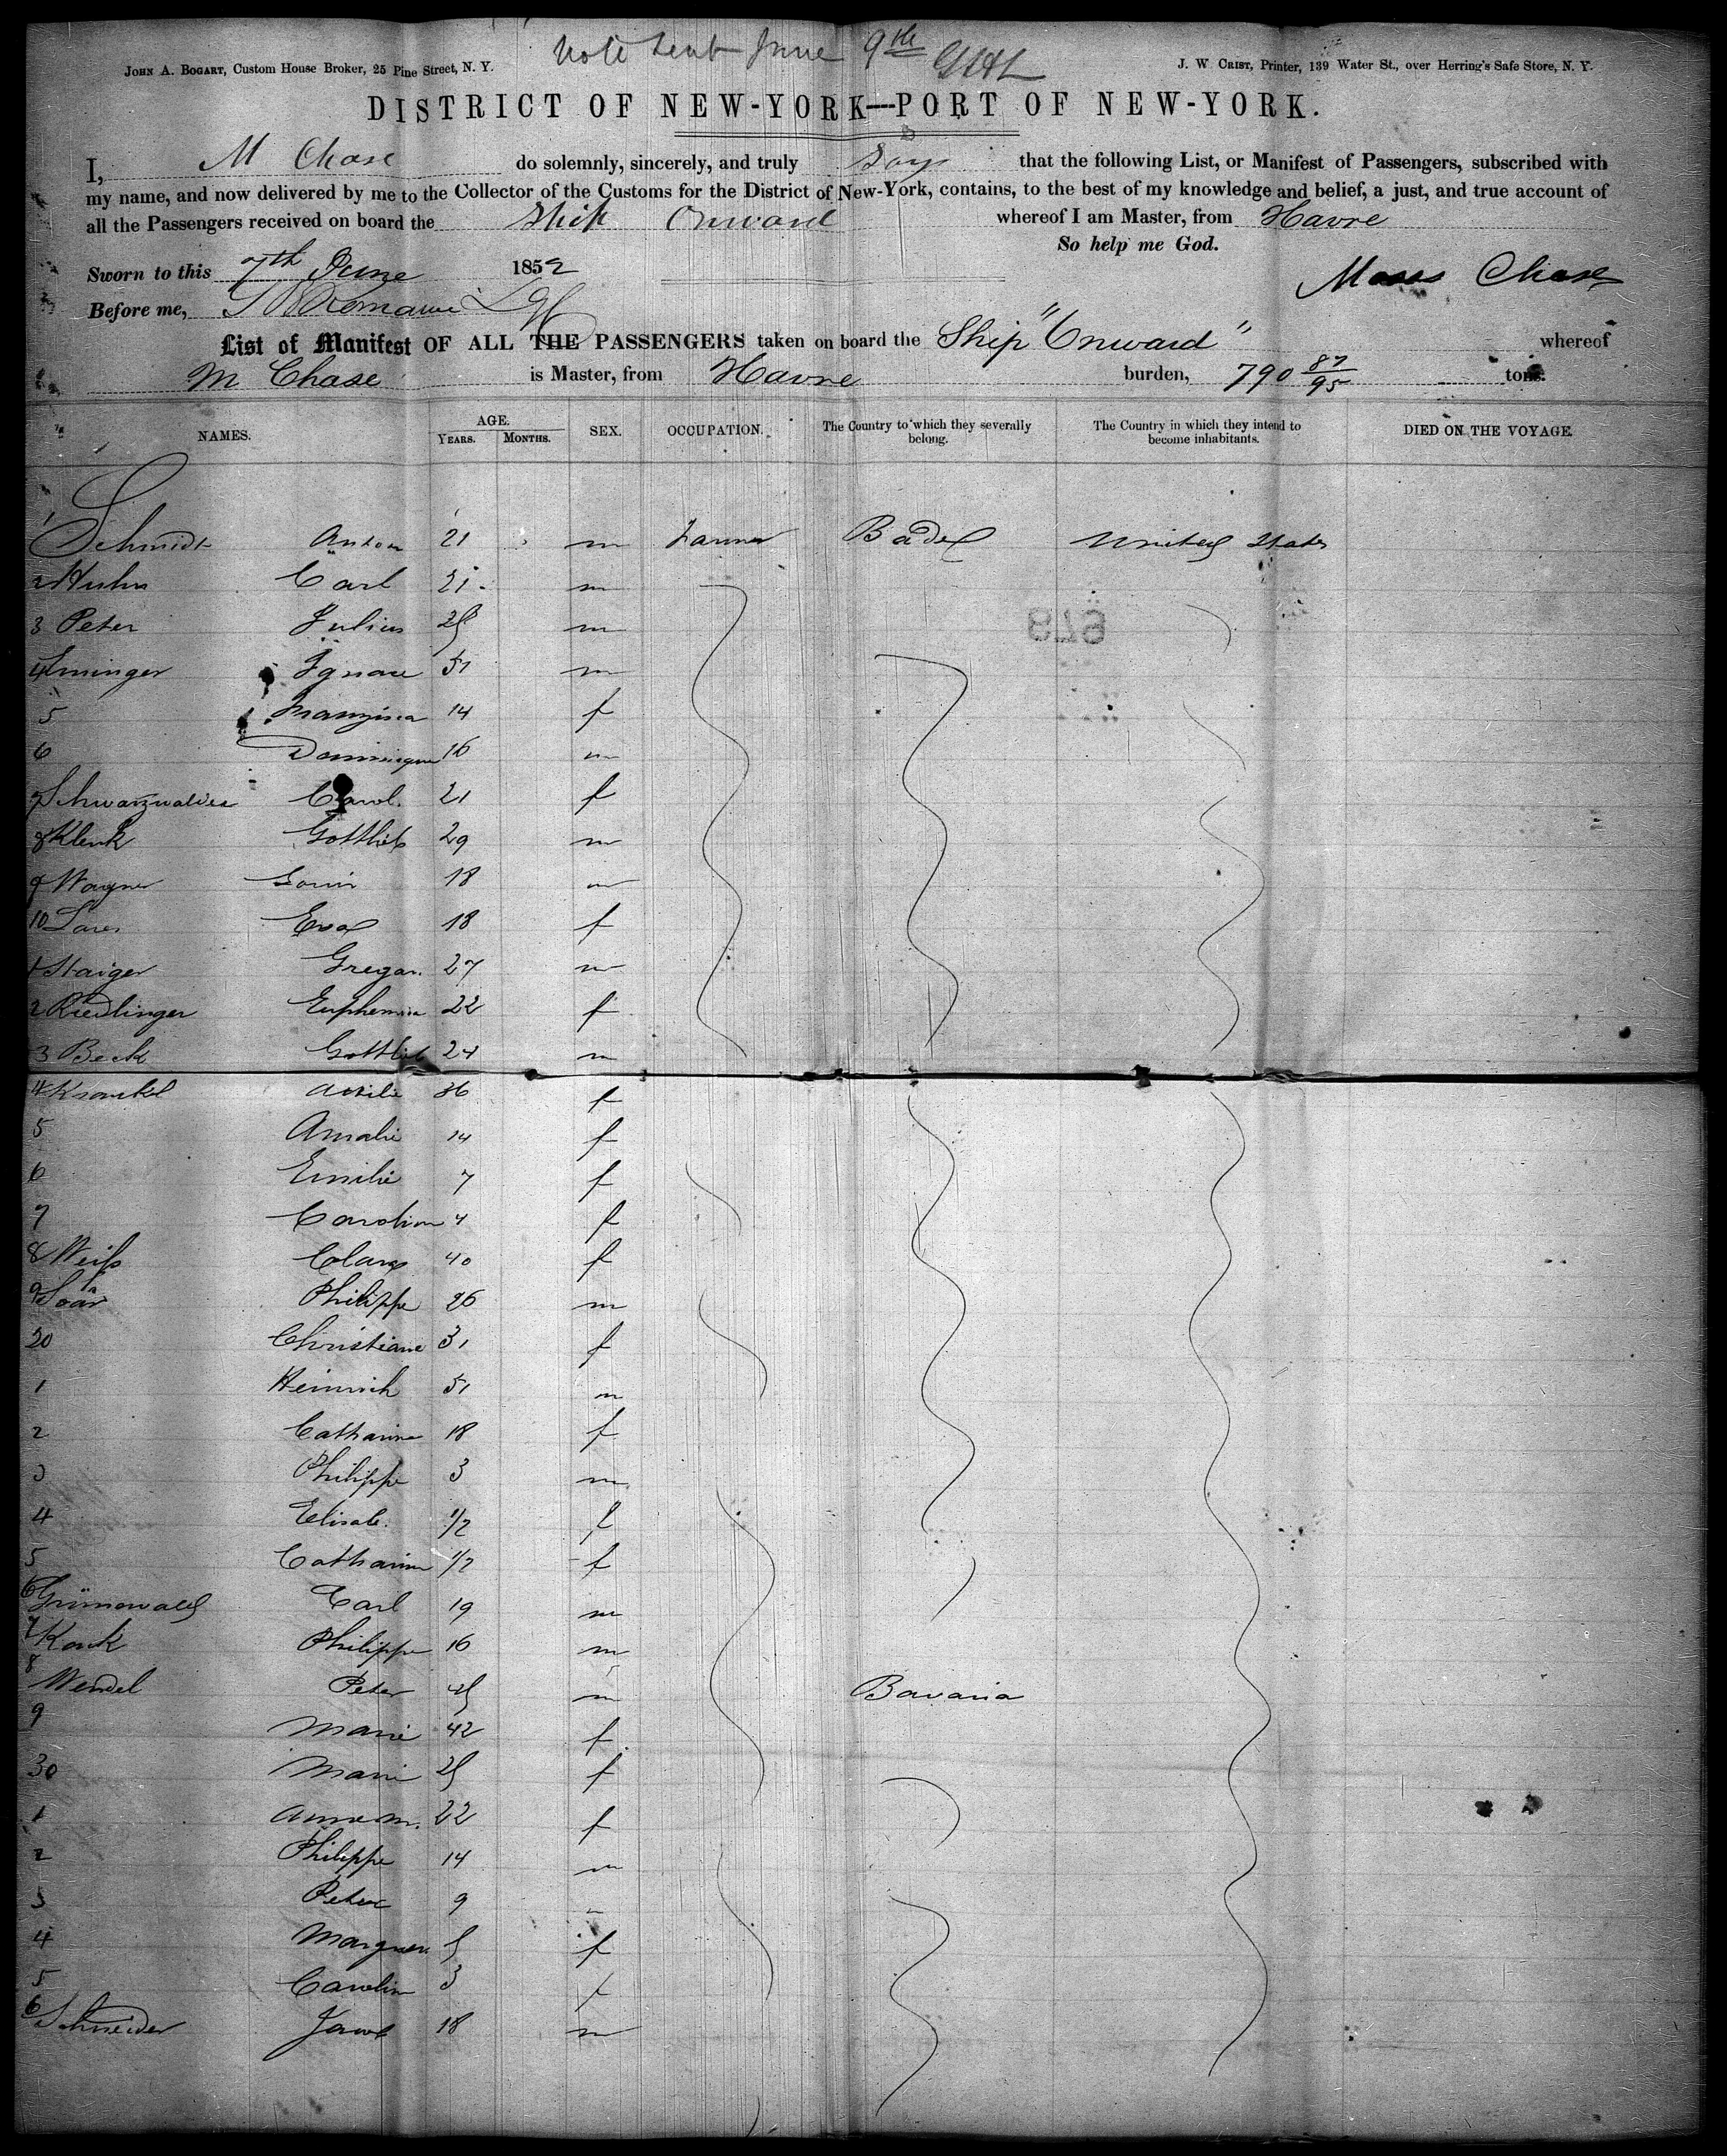 Note sent June 9th
JOHN A. BOGART, Custom House Broker, 25 Pine Street, N. Y.
J. W. CRIST, Printer, 139 Water St., over Herring's Safe Store, N. Y.
DISTRICT OF NEW-YORK—PORT OF NEW-YORK.
I, M Chase do solemnly, sincerely, and truly say that the following List, or Manifest of Passengers, subscribed with
my name, and now delivered by me to the Collector of the Customs for the District of New-York, contains, to the best of my knowledge and belief, a just, and true account of
all the Passengers received on board the Ship Onward whereof I am Master, from Havre
So help me God.
Sworn to this 7th June 1852
Moses Chase
Before me,
List of Manifest OF ALL THE PASSENGERS taken on board the Ship "Onward" whereof
M Chase is Master, from Havre burden, 790 87/95 tons.
NAMES. AGE. YEARS. MONTHS. SEX. OCCUPATION. The Country to which they severally belong. The Country in which they intend to become inhabitants. DIED ON THE VOYAGE.
1 Schmidt Anton 21 m Farmer Baden United States
2 Huhn Carl 21 m
3 Peter Julius 25 m
679
4 Iminger Ignace 51 m
5 Franzisca 14 f
6 Dominique 16 m
7 Schwarzwalder Carol. 21 f
8 Klenk Gottlieb 29 m
9 Wagner Louis 18 m
10 Eva 18 f
1 Staiger Gregor. 27 m
2 Riedlinger Euphemia 22 f
3 Beck Gottlieb 24 m
4 Ottilie 36 f
5 Amalie 14 f
6 Emilie 7 f
7 Carolina 4 f
8 Weiß Clara 40 f
9 Philippe 26 m
20 Christiane 31 f
1 Heinrich 51 m
2 Catharina 18 f
3 Philippe 3 m
4 Elisab. 1/2 f
5 Catharina 1/2 f
6 Grünewald Carl 19 m
7 Philippe 16 m
8 Wendel Peter 45 m Bavaria
9 Marie 42 f
30 Marie 25 f
1 Anna M. 22 f
2 Philippe 14 m
3 Peter 9
4 Marguer. 5 f
5 Carolin 3 f
6 Schneider Jacob 18 m